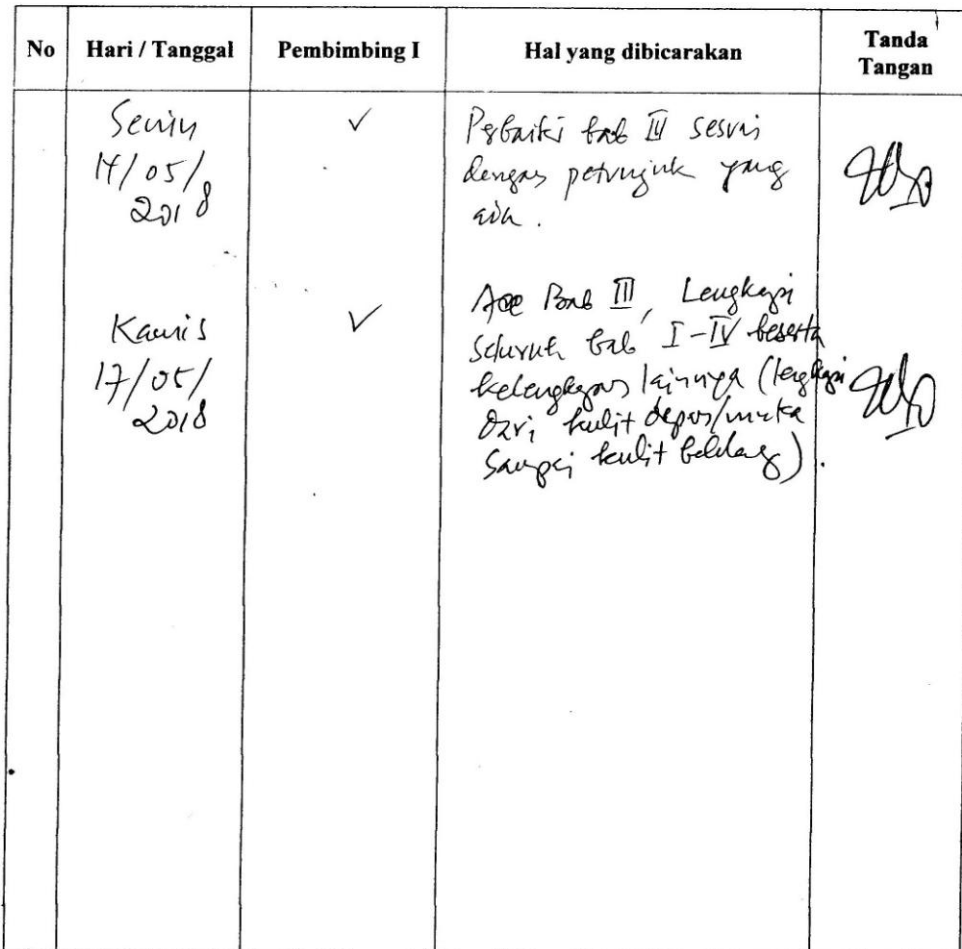 No Hari / Tanggal Pembimbing I Hal yang dibicarakan Tanda Tangan
Senin
14/05/
2018
✓
Perbaiki bab IV sesuai
dengan petunjuk yang
ada.
Kamis
17/05/
2018
✓
Acc Bab III, Lengkapi
seluruh bab I-IV beserta
kelengkapan lainnya (lengkapi
dari kulit depan/muka
sampai kulit belakang).